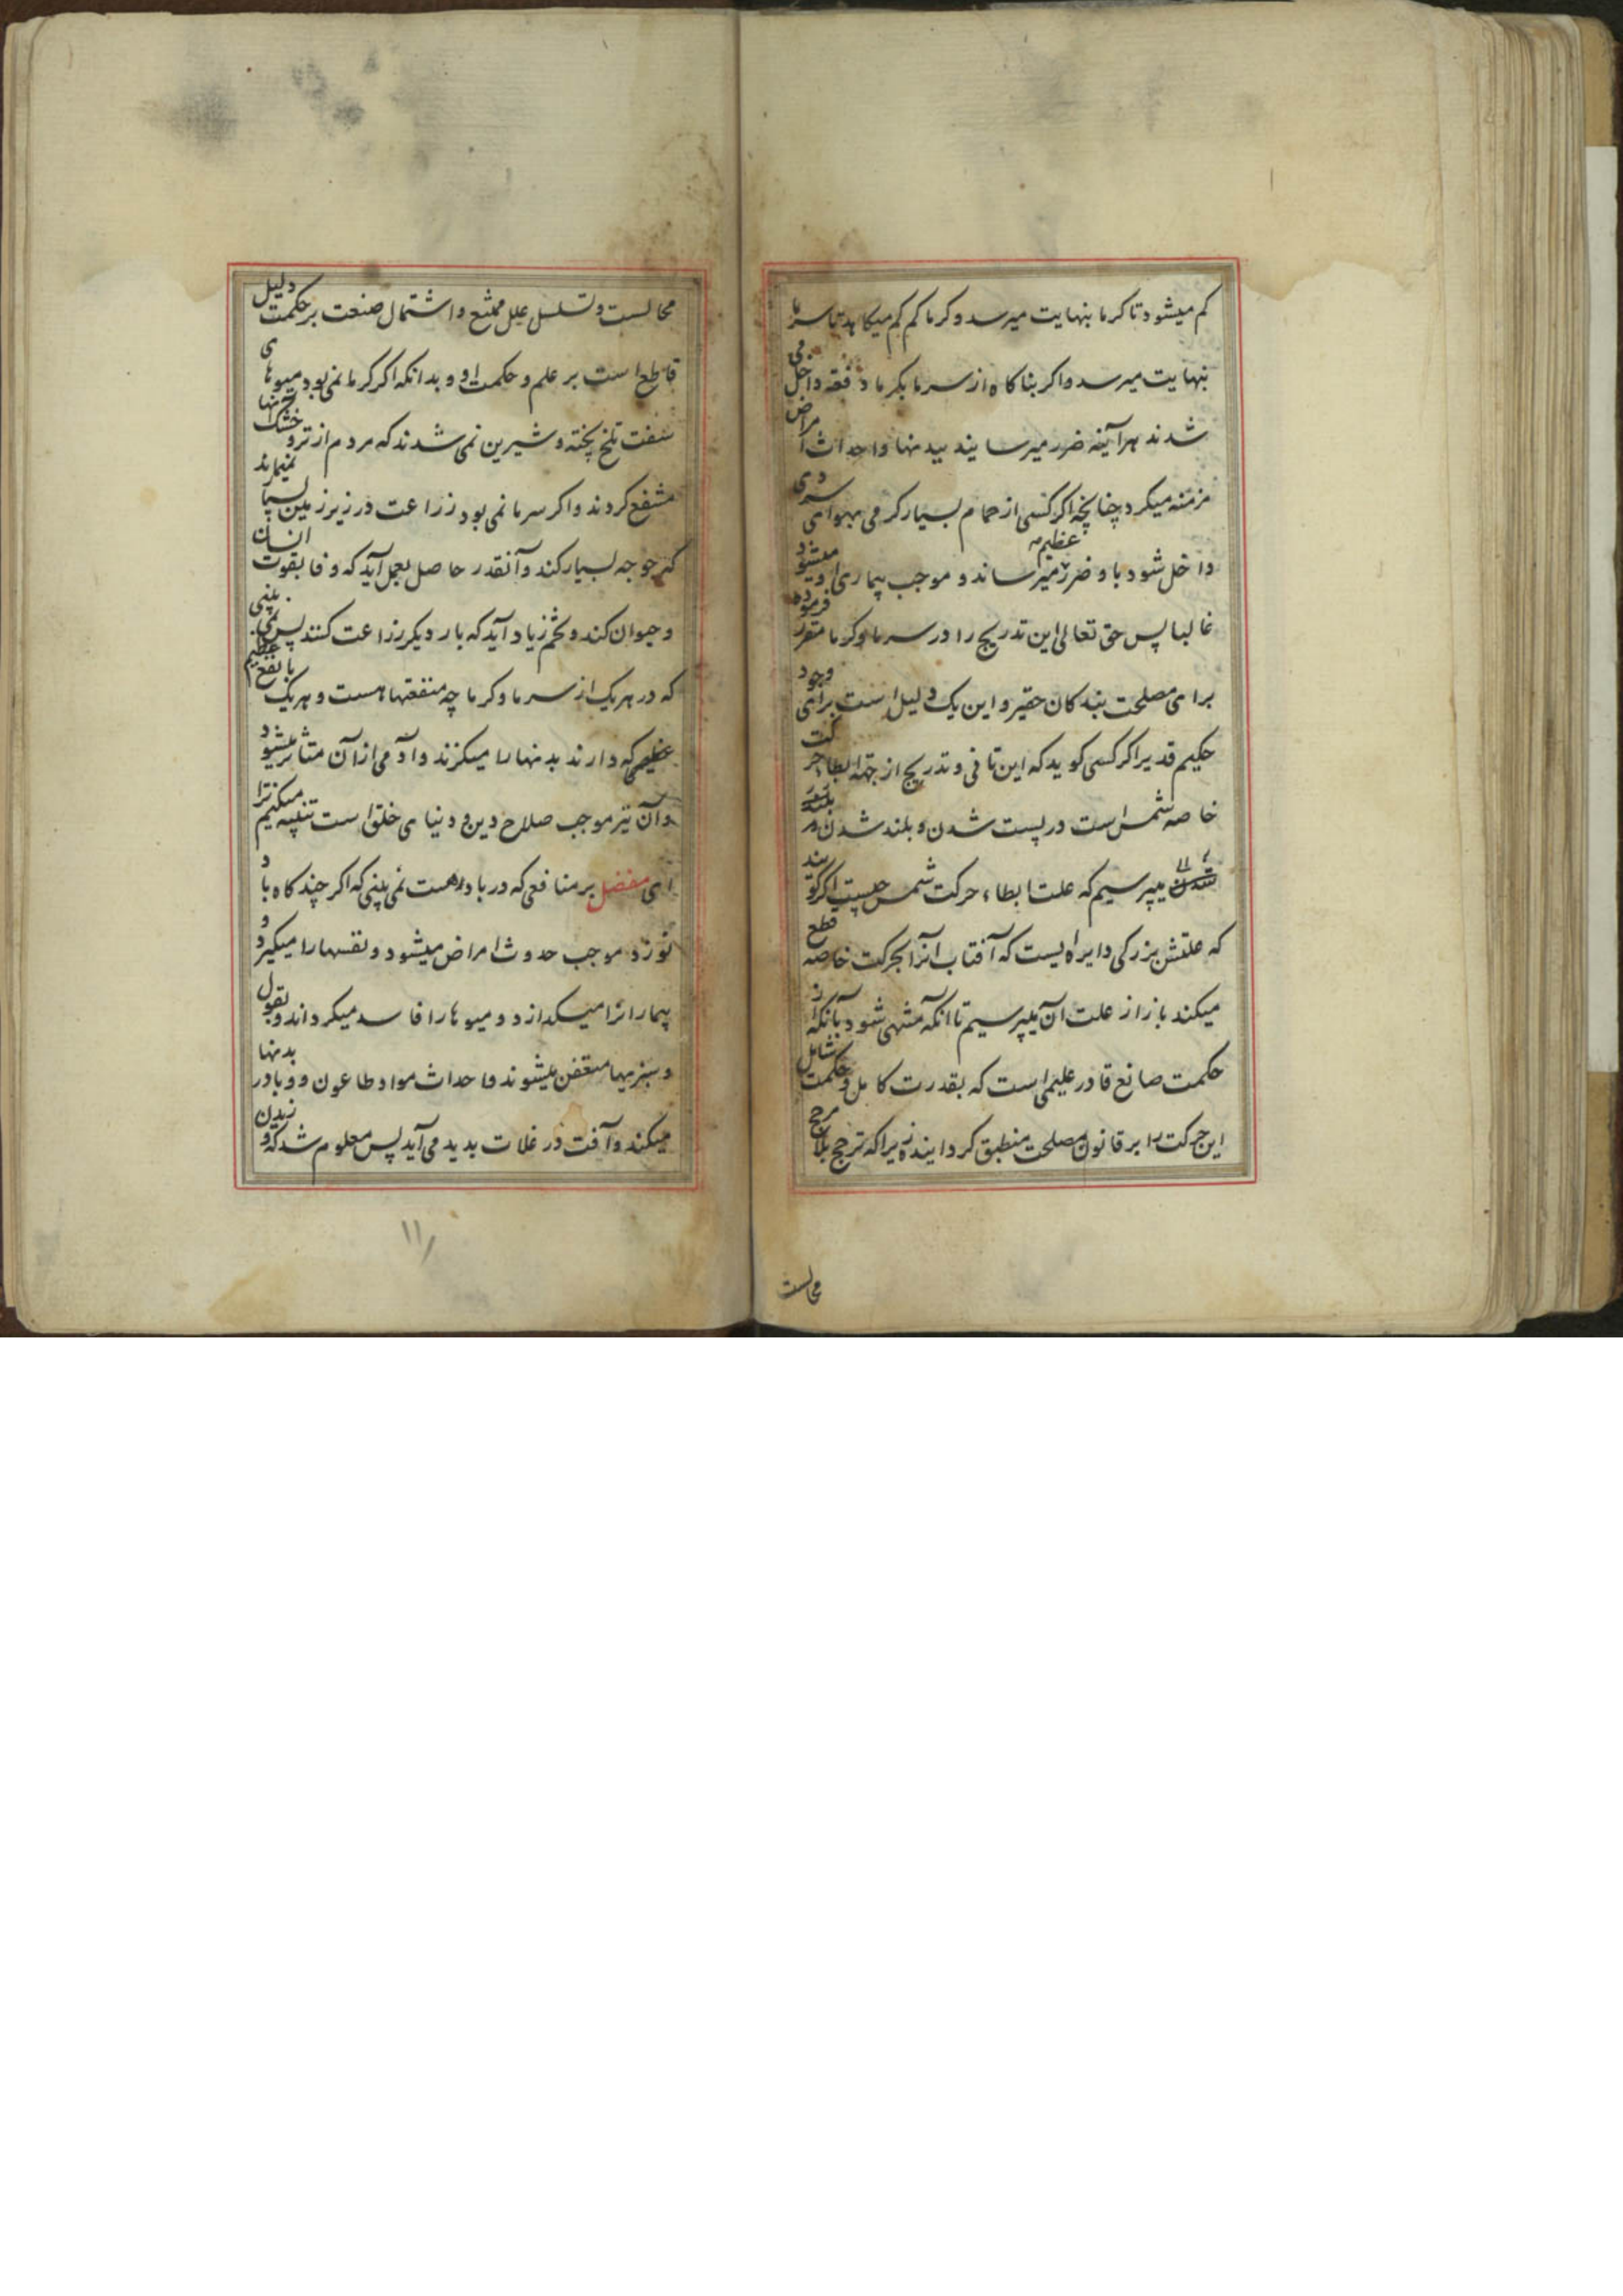 کم میشود تا کرما بنهایت میرسد و کرما کم کم میکاهد تا سرما
بنهایت میرسد و اکر بناکاه از سرما بکرما دفعة داخل می
شدند هرآینه ضرر میرسانید ببدنها و احداث امراض
مزمنه میکرد چنانچه اکر کسی از حمام بسیار کرمی بهوای سردی
داخل شود باو ضرر عظیم میرساند و موجب بیماری او میشود
غالبا پس حق تعالی این تدریج را در سرما و کرما مقرر فرموده
برای مصلحت بندکان حقیر و این یک دلیل است برای وجود
حکیم قدیر اکر کسی کوید که این تانی و تدریج از جهة ابطاء حرکت
خاصه شمس است در پست شدن و بلند شدن
میپرسیم که علت ابطاء حرکت شمس چیست اکر کویند
که علتش بزرکی دایره ایست که آفتاب انرا بحرکت خاصه قطع
میکند باز از علت آن میپرسیم تا انکه منتهی شود بانکه از
حکمت صانع قادر علیمی است که بقدرت کامل و حکمت شامل
این حرکت را بر قانون مصلحت منطبق کردانیده زیراکه ترجیح بلا مرجح
محالست
محالست و تسلسل علل ممتنع و اشتمال صنعت بر حکمت دلیل
قاطع است بر علم و حکمت او و بدانکه اکر کرما نمی بود میوهای
سفت تلخ پخته و شیرین نمی شدند که مردم از تر و خشک آنها
منتفع کردند و اکر سرما نمی بود زراعت در زیر زمین بسیار نمیماند
که جوجه بسیار کند و آنقدر حاصل بعمل آید که وفا بقوت انسان
و حیوان کند و تخم زیاد آید که بار دیکر زراعت کنند پس نمی بینی
که در هر یک از سرما و کرما چه منفعتها هست و هر یک با نفع عظیم
عظیمی که دارند بدنها را میکزند و آدمی از آن متأثر میشود
و آن نیز موجب صلاح دین و دنیای خلق است تنبیه میکنیم ترا
ای مفضل بر منافعی که در باد هست نمی بینی که اکر چند کاه باد
نوزد موجب حدوث امراض میشود و نفسها را میکیرد و
بیمارانرا میکدازد و میوها را فاسد میکرداند و بقول
و سبزیها متعفن میشوند و احداث مواد طاعون و وبا در بدنها
میکند و آفت در غلات بدید می آید پس معلوم شد که وزیدن
۱۱